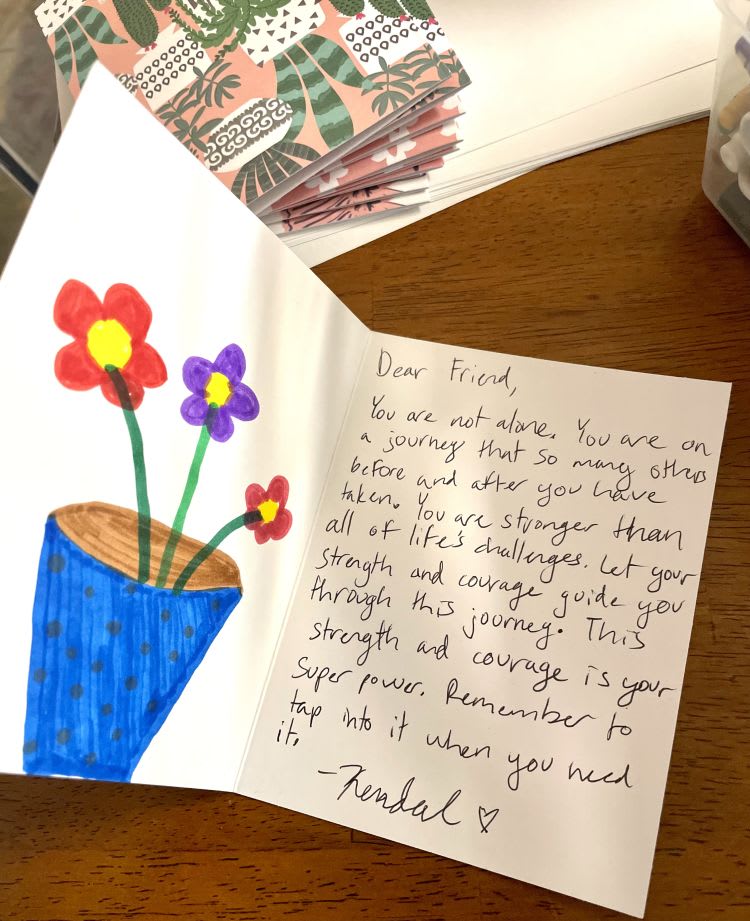 Dear Friend,
You are not alone. You are on
a journey that so many others
before and after you have
taken. You are stronger than
all of life's challenges. Let your
strength and courage guide you
through this journey. This
strength and courage is your
super power. Remember to
tap into it when you need
it.
-Kendal ♡